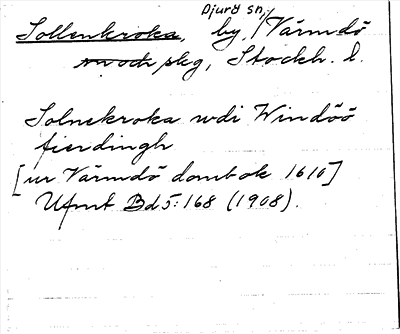 Djurö sn,
Sollenkroka, by, Värmdö
sn och skg, Stockh. l.
Solnekroka udi Windöö
fierdingh
[ur Värmdö dombok 1610]
Ufmt Bd 5:168 (1908).